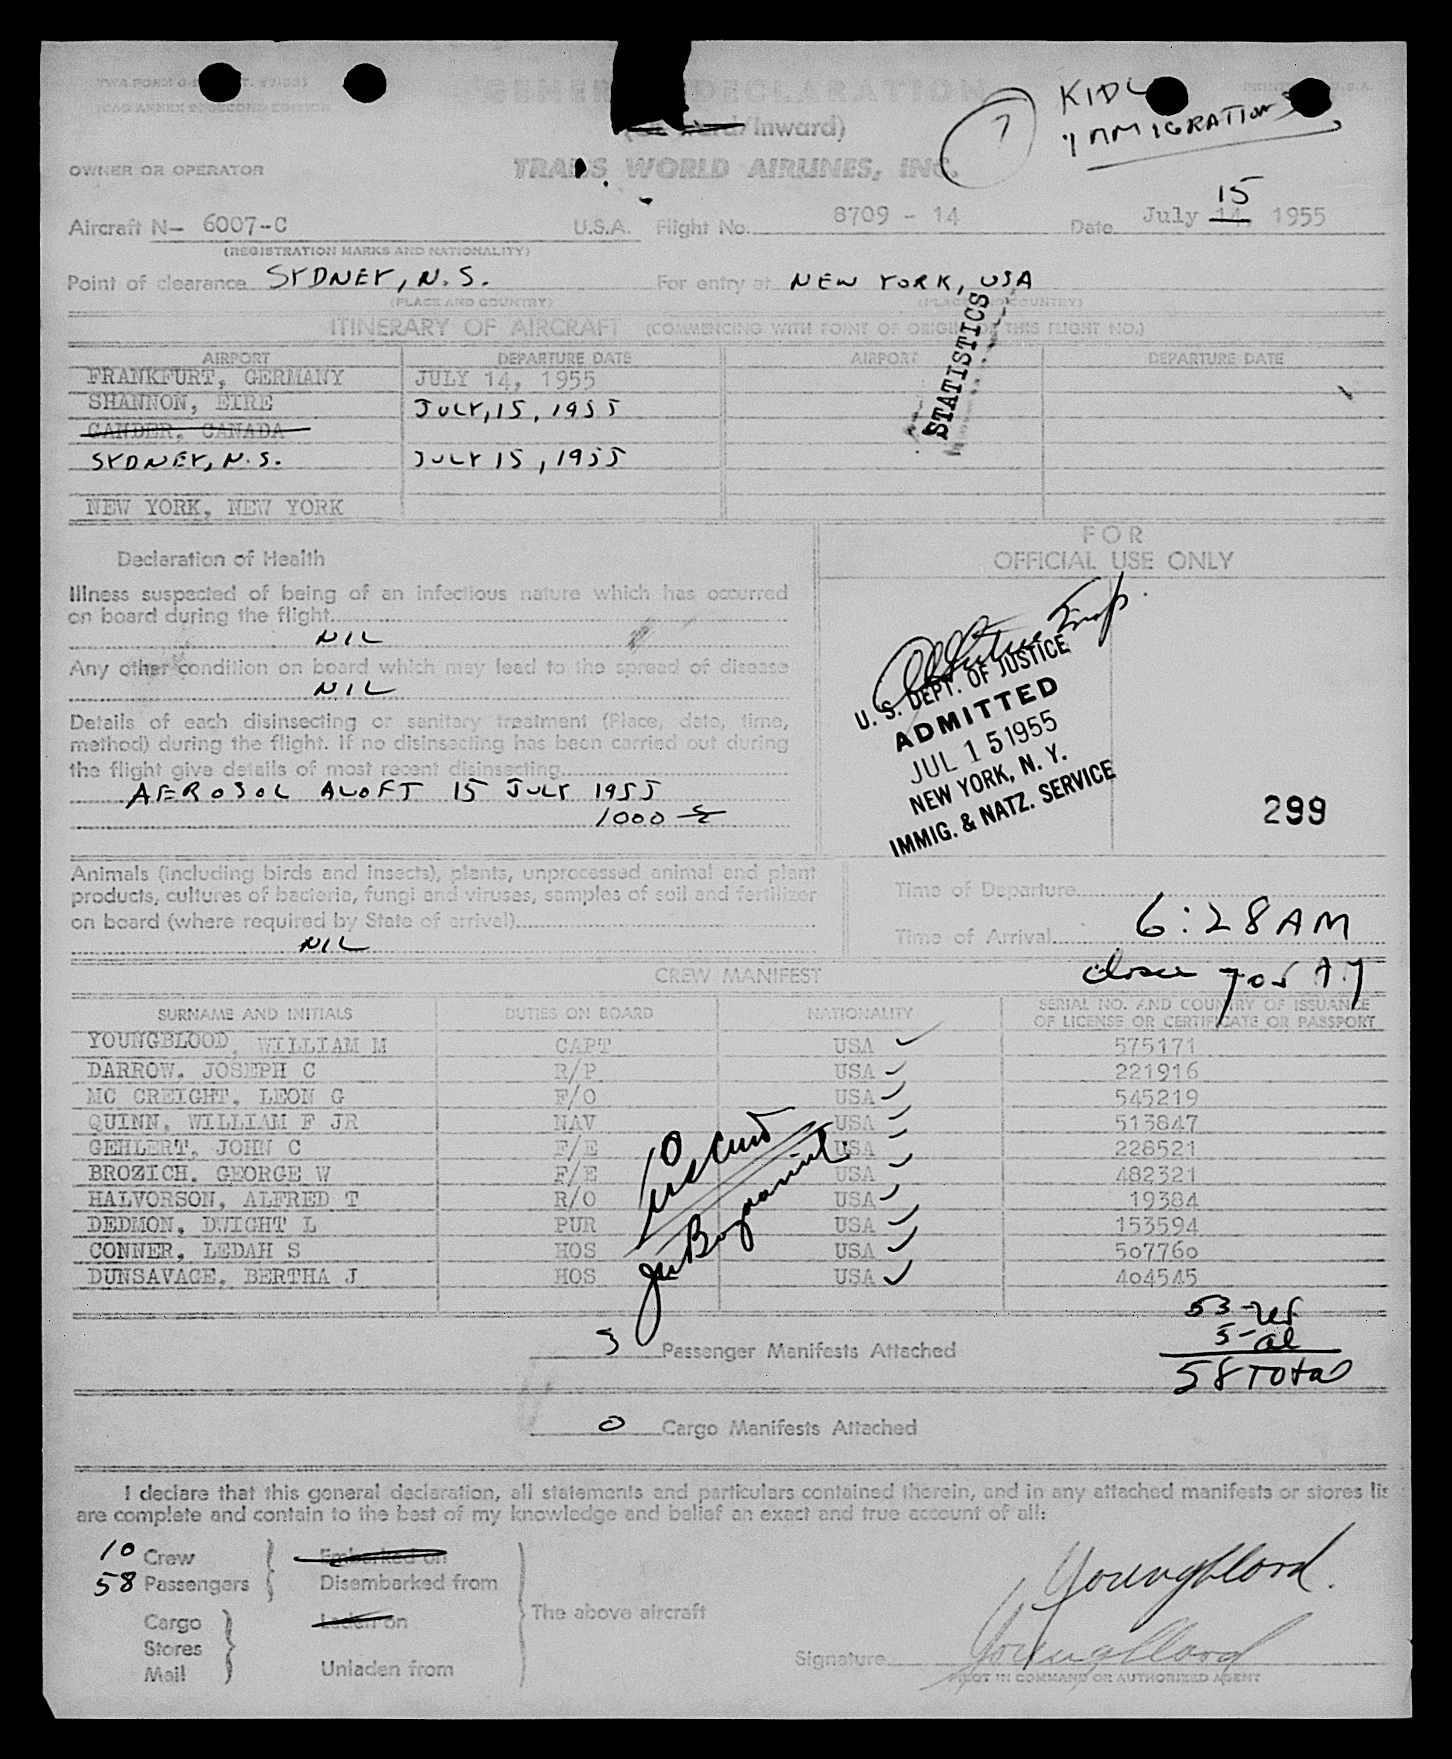 GENER DECLARATION
KIDL
IMMIGRATION
7
/Inward)
OWNER OR OPERATOR
TRANS WORLD AIRLINES, INC.
Aircraft N- 6007-C U.S.A. Flight No. 8709 - 14 Date July 14, 15 1955
(REGISTRATION MARKS AND NATIONALITY)
Point of clearance SYDNEY, N.S. For entry at NEW YORK, USA
(PLACE AND COUNTRY) (PLACE AND COUNTRY)
STATISTICS
ITINERARY OF AIRCRAFT (COMMENCING WITH POINT OF ORIGIN OF THIS FLIGHT NO.)
AIRPORT DEPARTURE DATE AIRPORT DEPARTURE DATE
FRANKFURT, GERMANY JULY 14, 1955
SHANNON, EIRE JULY, 15, 1955
GANDER, CANADA
SYDNEY, N.S. JULY 15, 1955
NEW YORK, NEW YORK
FOR
OFFICIAL USE ONLY
Declaration of Health
Illness suspected of being of an infectious nature which has occurred
on board during the flight
NIL
Any other condition on board which may lead to the spread of disease
NIL
Details of each disinsecting or sanitary treatment (Place, date, time,
method) during the flight. If no disinsecting has been carried out during
the flight give details of most recent disinsecting
AEROSOL ALOFT 15 JULY 1955
1000
U. S. DEPT. OF JUSTICE
ADMITTED
JUL 15 1955
NEW YORK, N. Y.
IMMIG. & NATZ. SERVICE
299
Animals (including birds and insects), plants, unprocessed animal and plant
products, cultures of bacteria, fungi and viruses, samples of soil and fertilizer
on board (where required by State of arrival)
NIL
Time of Departure
Time of Arrival 6:28 AM
CREW MANIFEST
SURNAME AND INITIALS DUTIES ON BOARD NATIONALITY SERIAL NO. AND COUNTRY OF ISSUANCE
OF LICENSE OR CERTIFICATE OR PASSPORT
YOUNGBLOOD, WILLIAM M CAPT USA 575171
DARROW, JOSEPH C R/P USA 221916
MC CREIGHT, LEON G F/O USA 545219
QUINN, WILLIAM F JR NAV USA 513847
GEHLERT, JOHN C F/E USA 228521
BROZICH, GEORGE W F/E USA 482321
HALVORSON, ALFRED T R/O USA 19384
DEDMON, DWIGHT L PUR USA 153594
CONNER, LEDAH S HOS USA 507760
DUNSAVAGE, BERTHA J HOS USA 404545
10
53 - US
5 - al
58 Total
3 Passenger Manifests Attached
0 Cargo Manifests Attached
I declare that this general declaration, all statements and particulars contained therein, and in any attached manifests or stores lis
are complete and contain to the best of my knowledge and belief an exact and true account of all:
10 Crew Embarked on
58 Passengers Disembarked from
The above aircraft
Cargo Laden on
Stores
Mail Unladen from
Youngblood.
Signature Youngblood
PILOT IN COMMAND OR AUTHORIZED AGENT